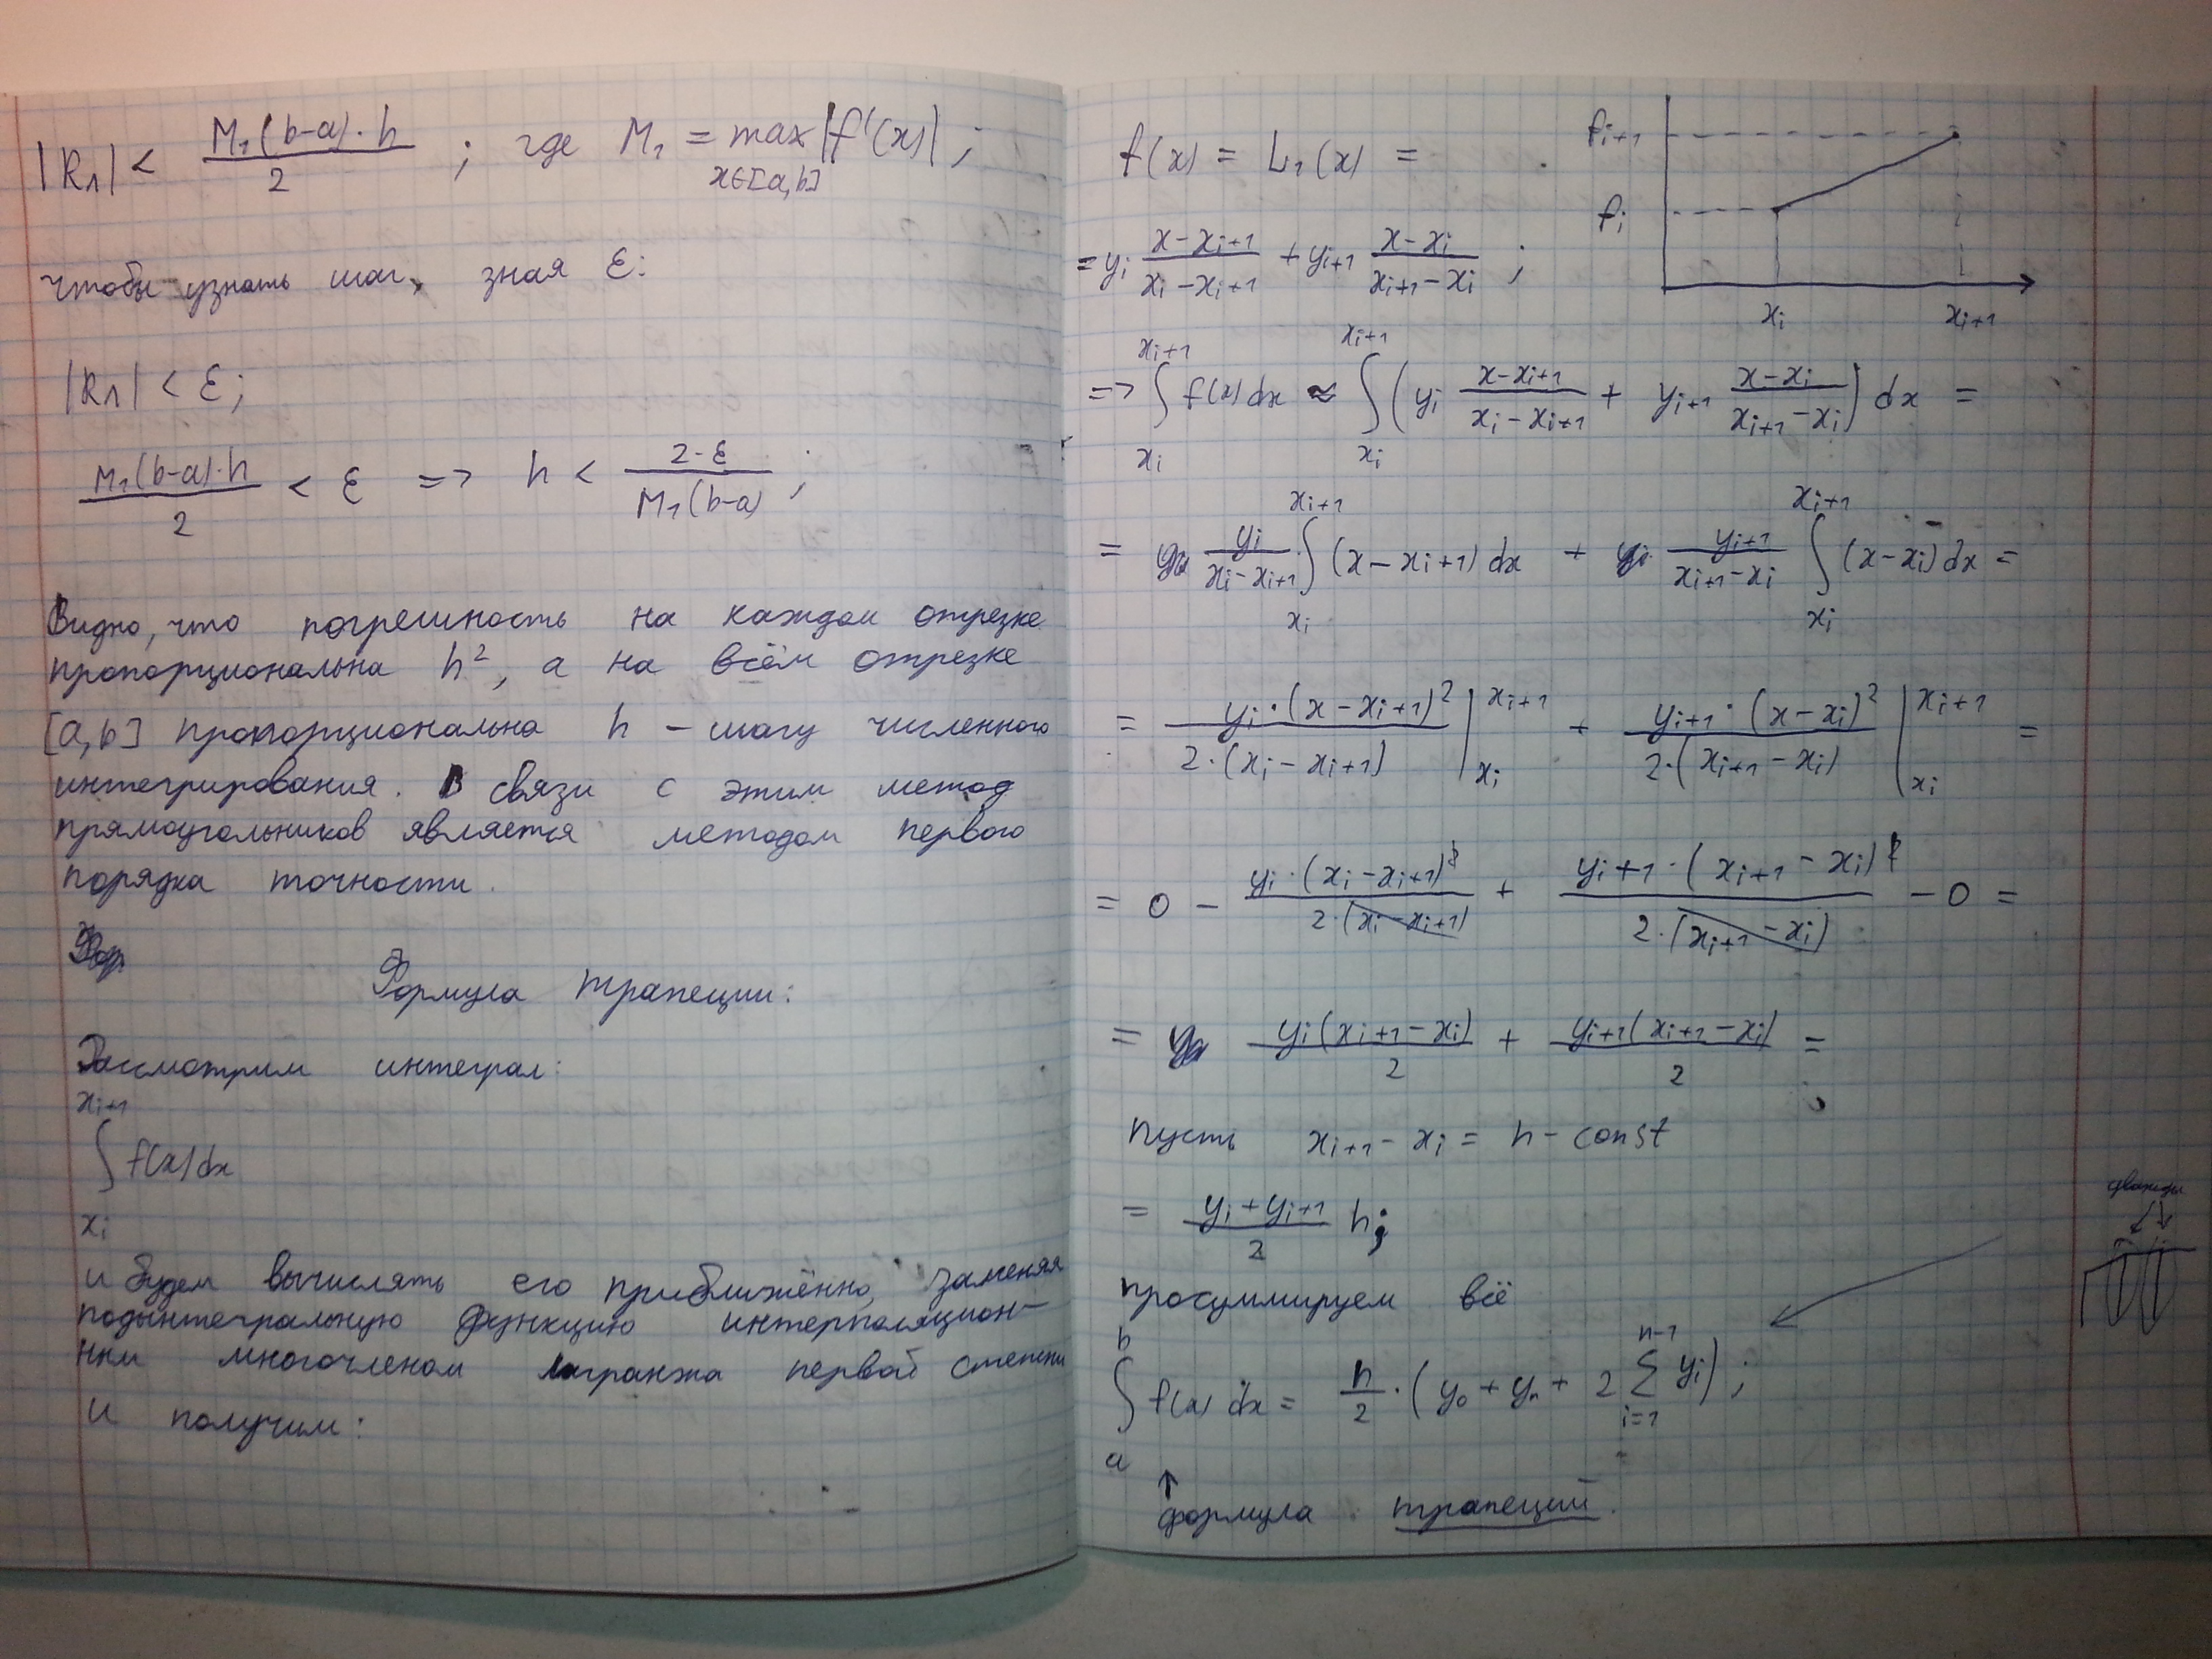 |Rл| < M₁(b-a)·h / 2 ; где M₁ = max |f'(x)| ;
x∈[a,b]
чтобы узнать шаг, зная ε:
|Rл| < ε;
M₁(b-a)·h / 2 < ε => h < 2·ε / M₁(b-a) ;
Видно, что погрешность на каждом отрезке
пропорциональна h², а на всём отрезке
[a,b] пропорциональна h - шагу численного
интегрирования. В связи с этим метод
прямоугольников является методом первого
порядка точности.
Формула трапеции:
Рассмотрим интеграл:
xi+1
∫ f(x)dx
xi
и будем вычислять его приближённо, заменяя
подынтегральную функцию интерполяцион-
ным многочленом лагранжа первой степени
и получим:
f(x) = L₁(x) =
= yi (x-xi+1)/(xi-xi+1) + yi+1 (x-xi)/(xi+1-xi) ;
fi+1
fi
xi xi+1
xi+1 xi+1
=> ∫ f(x)dx ≈ ∫ (yi (x-xi+1)/(xi-xi+1) + yi+1 (x-xi)/(xi+1-xi)) dx =
xi xi
xi+1 xi+1
= yi/(xi-xi+1) ∫ (x-xi+1)dx + yi+1/(xi+1-xi) ∫ (x-xi)dx =
xi xi
= yi·(x-xi+1)² / 2·(xi-xi+1) |xi+1 xi + yi+1·(x-xi)² / 2·(xi+1-xi) |xi+1 xi =
= 0 - yi·(xi-xi+1)² / 2·(xi-xi+1) + yi+1·(xi+1-xi)² / 2·(xi+1-xi) - 0 =
= yi(xi+1-xi)/2 + yi+1(xi+1-xi)/2 =
пусть xi+1-xi = h - const
= (yi+yi+1)/2 h;
дважды
просуммируем всё
b n-1
∫ f(x)dx = h/2·(y₀+yn+ 2 Σ yi) ;
a i=1
↑
формула трапеций.